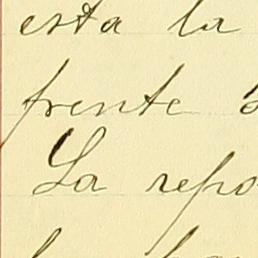 esta la
frente
La repo